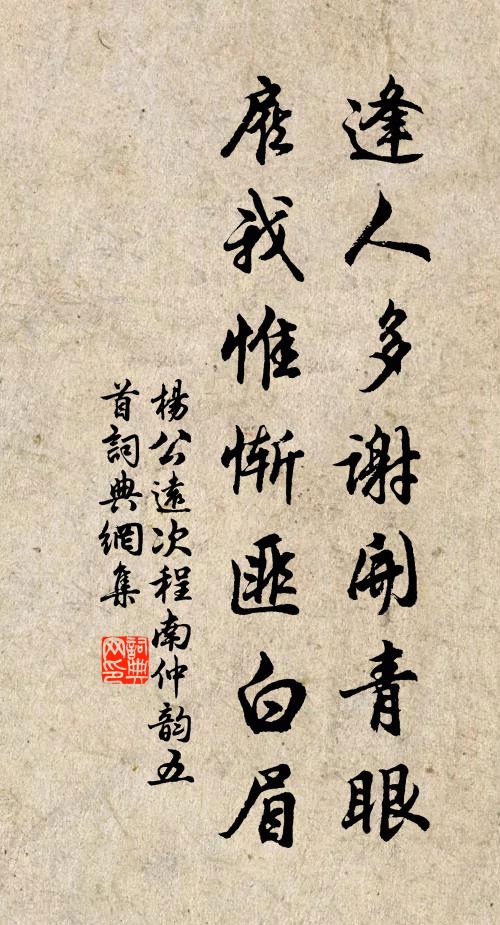 逢人多谢開青眼
扂我惟惭匪白眉
楊公遠次程南仲韵五
首詞典網集
詞典
网印